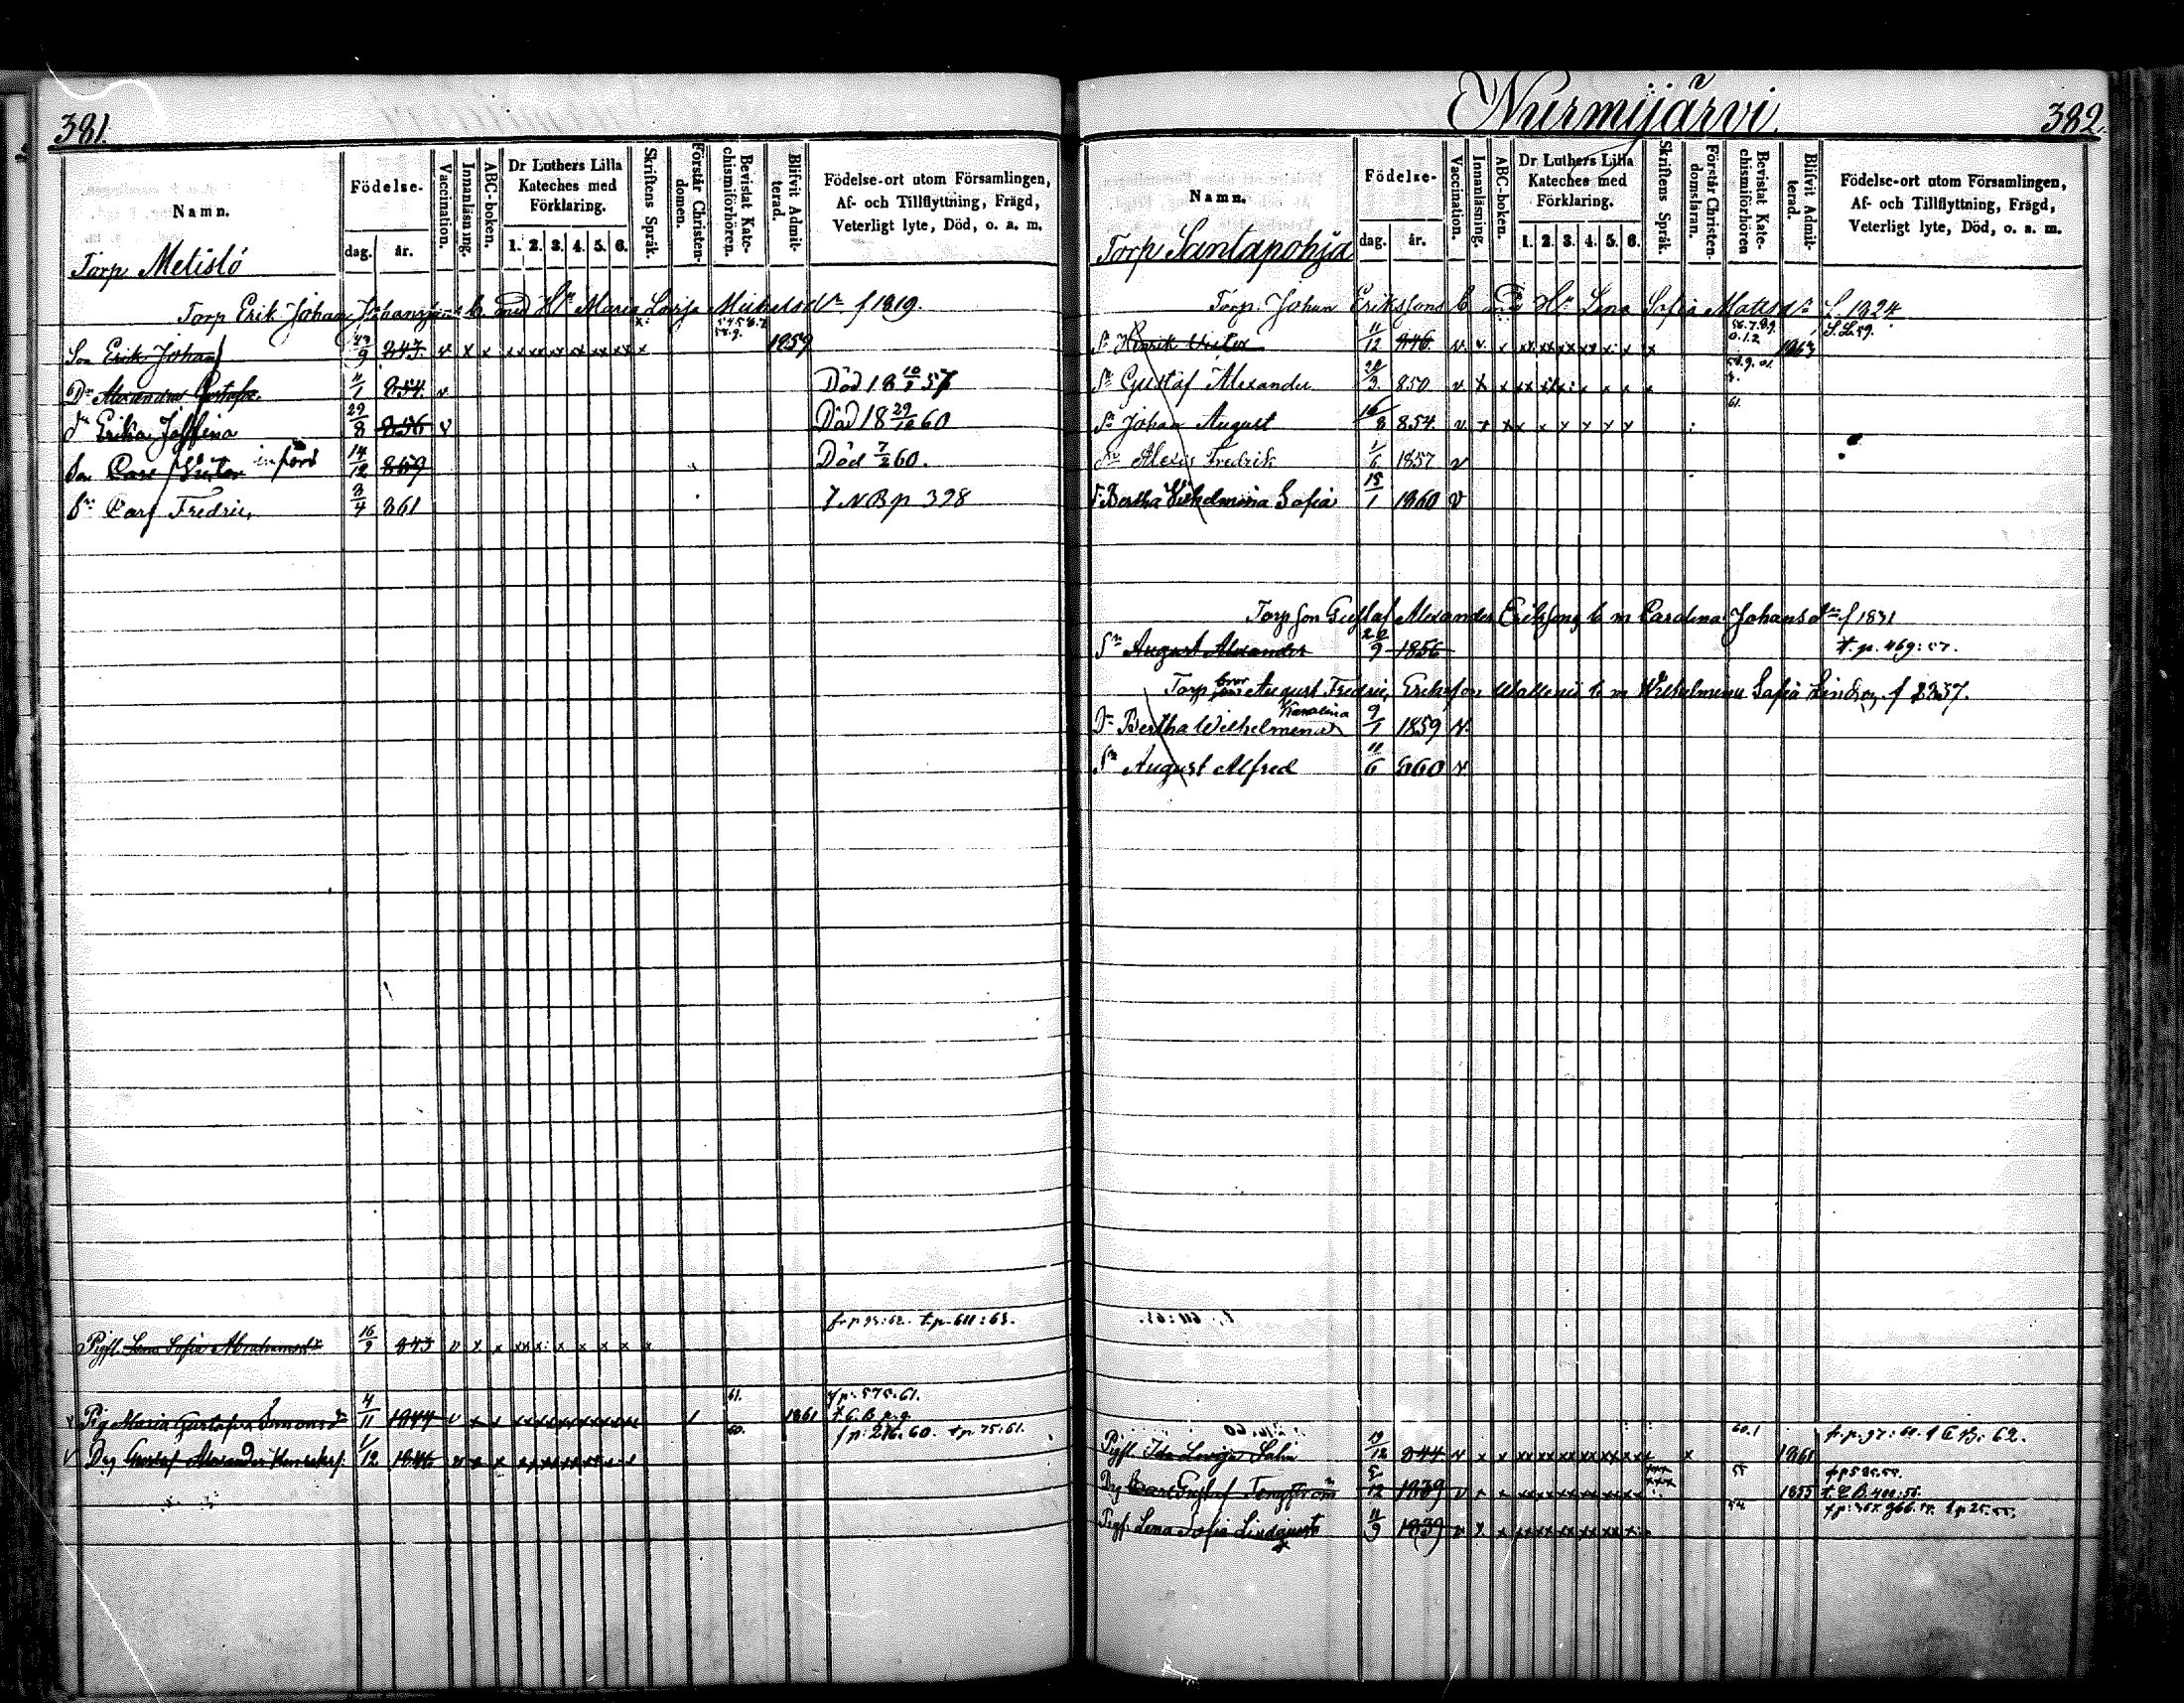 381.
Namn.
Födelse-
dag. år.
Vaccination.
Innanläsning.
ABC-boken.
Dr Luthers Lilla
Kateches med
Förklaring.
1. 2. 3. 4. 5. 6.
Skriftens Språk.
Förstår Christen-
domen.
Bevistat Kate-
chismiförhören.
Blifvit Admit-
terad.
Födelse-ort utom Församlingen,
Af- och Tillflyttning, Frägd,
Veterligt lyte, Död, o. a. m.
Torp Metistö
Torp Erik Johan Johanssons b. med Hu Maria Lovisa Michelsdr f 1819.
Son Erik Johan 9 847. v x x xx xx xx xx xx xx x 1859
Dr Alexandra Gustafva 11/1 854. v Död 18 10/2 57
Dr Erika Josefina 29/8 856 v Död 18 29/10 60
Son Carl Victor införd 14/12 859 Död 7/2 60.
Sn Carl Fredric 3/4 861 NB p 328
fr p 93:62. t.p. 611:63.
Pigfl. Lena Sofia Abrahamsdr 16/9 843 v x x xx x: x x x x x
61. f p. 575.61.
Pig Maria Gustafva Simonsdr 4/11 1844 v x x 1861 t. C. B. p. 9.
60. f p: 216. 60. t p 75:61.
Drg Gustaf Alexander Henrikss. 1/12 1846
Nurmijärvi.
382.
Namn.
Födelse-
dag. år.
Vaccination.
Innanläsning.
ABC-boken.
Dr Luthers Lilla
Kateches med
Förklaring.
1. 2. 3. 4. 5. 6.
Skriftens Språk.
Förstår Christen-
domsläran.
Bevistat Kate-
chismiförhören
Blifvit Admit-
terad.
Födelse-ort utom Församlingen,
Af- och Tillflyttning, Frägd,
Veterligt lyte, Död, o. a. m.
Torp Santapohja
Torp. Johan Erikssons b med Hu Lena Sofia Matsdr f. 1824
Sn Henrik Victor 11/12 846. v. v. x xx xx xx xx x: x x 1863
Sn Gustaf Alexander 20/3. 850 v x x
61.
Sn Johan August 16/8 854. v x x x x x x x
Sn Alexis Fredrik 1/6 1857 v
Dr Bertha Wilhelmina Sofia 15/1 1860 v
Torp son Gustaf Alexander Erikssons b m Carolina Johansdr f 1831
Sn August Alexander 22/9 1856 t. p. 469:57.
Torp bror August Fredric Eriksson Wallenii b m Wilhelmina Sofia Lindroos f 1837.
Karolina
Dr Bertha Wilhelmina 9/1 1859 v.
Sn August Alfred 11/6 860 v
60.1 f. p. 97:60. t C B: 62.
Pigfl. Ida Lovisa Salin 19/12 844 v x x 1861
55 f p 585.55.
Drg Carl Gustaf Tengström 5/12 1839 v x x 1855 t. C B. 400:55.
54
Pigfl. Lena Sofia Lindqvist 11/9 1839 v x x